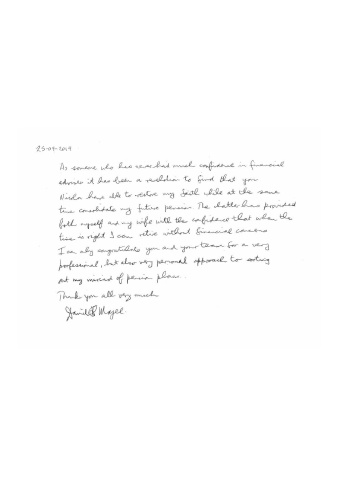 25-09-2019
As someone who has never had much confidence in financial
advisors it has been a revelation to find that you
Nicola have able to restore my faith while at the same
time consolidate my future pension. The latter has provided
both myself and my wife with the confidence that when the
time is right I can retire without financial concerns
I can only congratulate you and your team for a very
professional, but also very personal approach to sorting
out my myriad of pension plans.
Thank you all very much